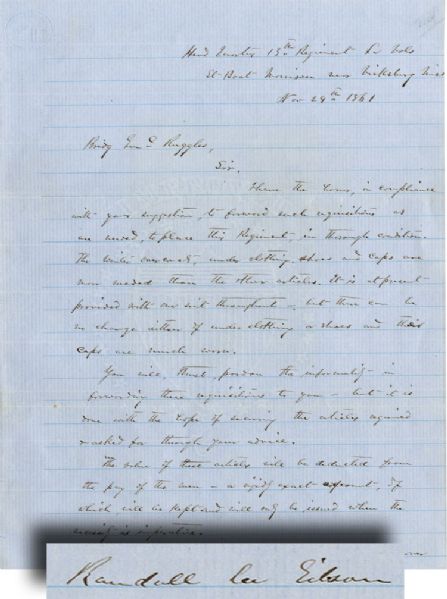 Head Quarters 13th Regiment La Vols
St Boat Morrison near Vicksburg Miss
Nov 29th 1861
Bridg Genl Ruggles,
Sir,
I have the honor, in compliance
with your suggestion, to forward such requisitions as
are needed, to place this Regiment, in thorough condition.
The winter overcoats under clothing, shoes and caps are
more needed than the other articles. It is at present
provided with one suit throughout, but there can be
no change either of under clothing or shoes and their
caps are much worn.
You will, I trust, pardon the informality in
forwarding these requisitions to you - but it is
done with the hope of securing the articles required
asked for through your advice.
The value of these articles will be deducted from
the pay of the men - a rigidly exact account of
which will be kept and will only be issued when the
necessity is imperative.
over
Randall Lee Gibson